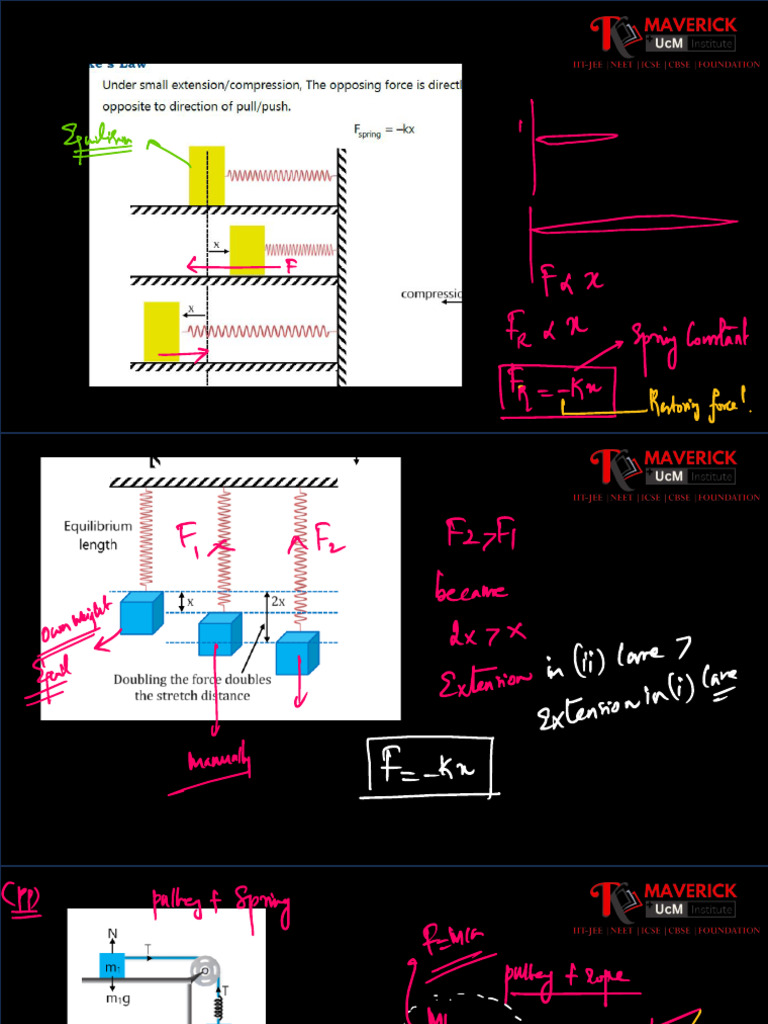 MAVERICK
UcM Institute
IIT-JEE | NEET | ICSE | CBSE | FOUNDATION
Law
Under small extension/compression, The opposing force is directl
opposite to direction of pull/push.
F spring = –kx
x
F
compressio
x
F ∝ x
F_R ∝ x
Spring Constant
F_R = -Kx
Restoring force!
MAVERICK
UcM Institute
IIT-JEE | NEET | ICSE | CBSE | FOUNDATION
Equilibrium
length
F1
F2
x
2x
Own weight
Doubling the force doubles
the stretch distance
Manually
F2 > F1
because
2x > x
Extension in (ii) Case >
Extension in (i) Case
F = -Kx
MAVERICK
UcM Institute
IIT-JEE | NEET | ICSE | CBSE | FOUNDATION
pulley + Spring
N
T
m1
m1g
T
pulley + rope